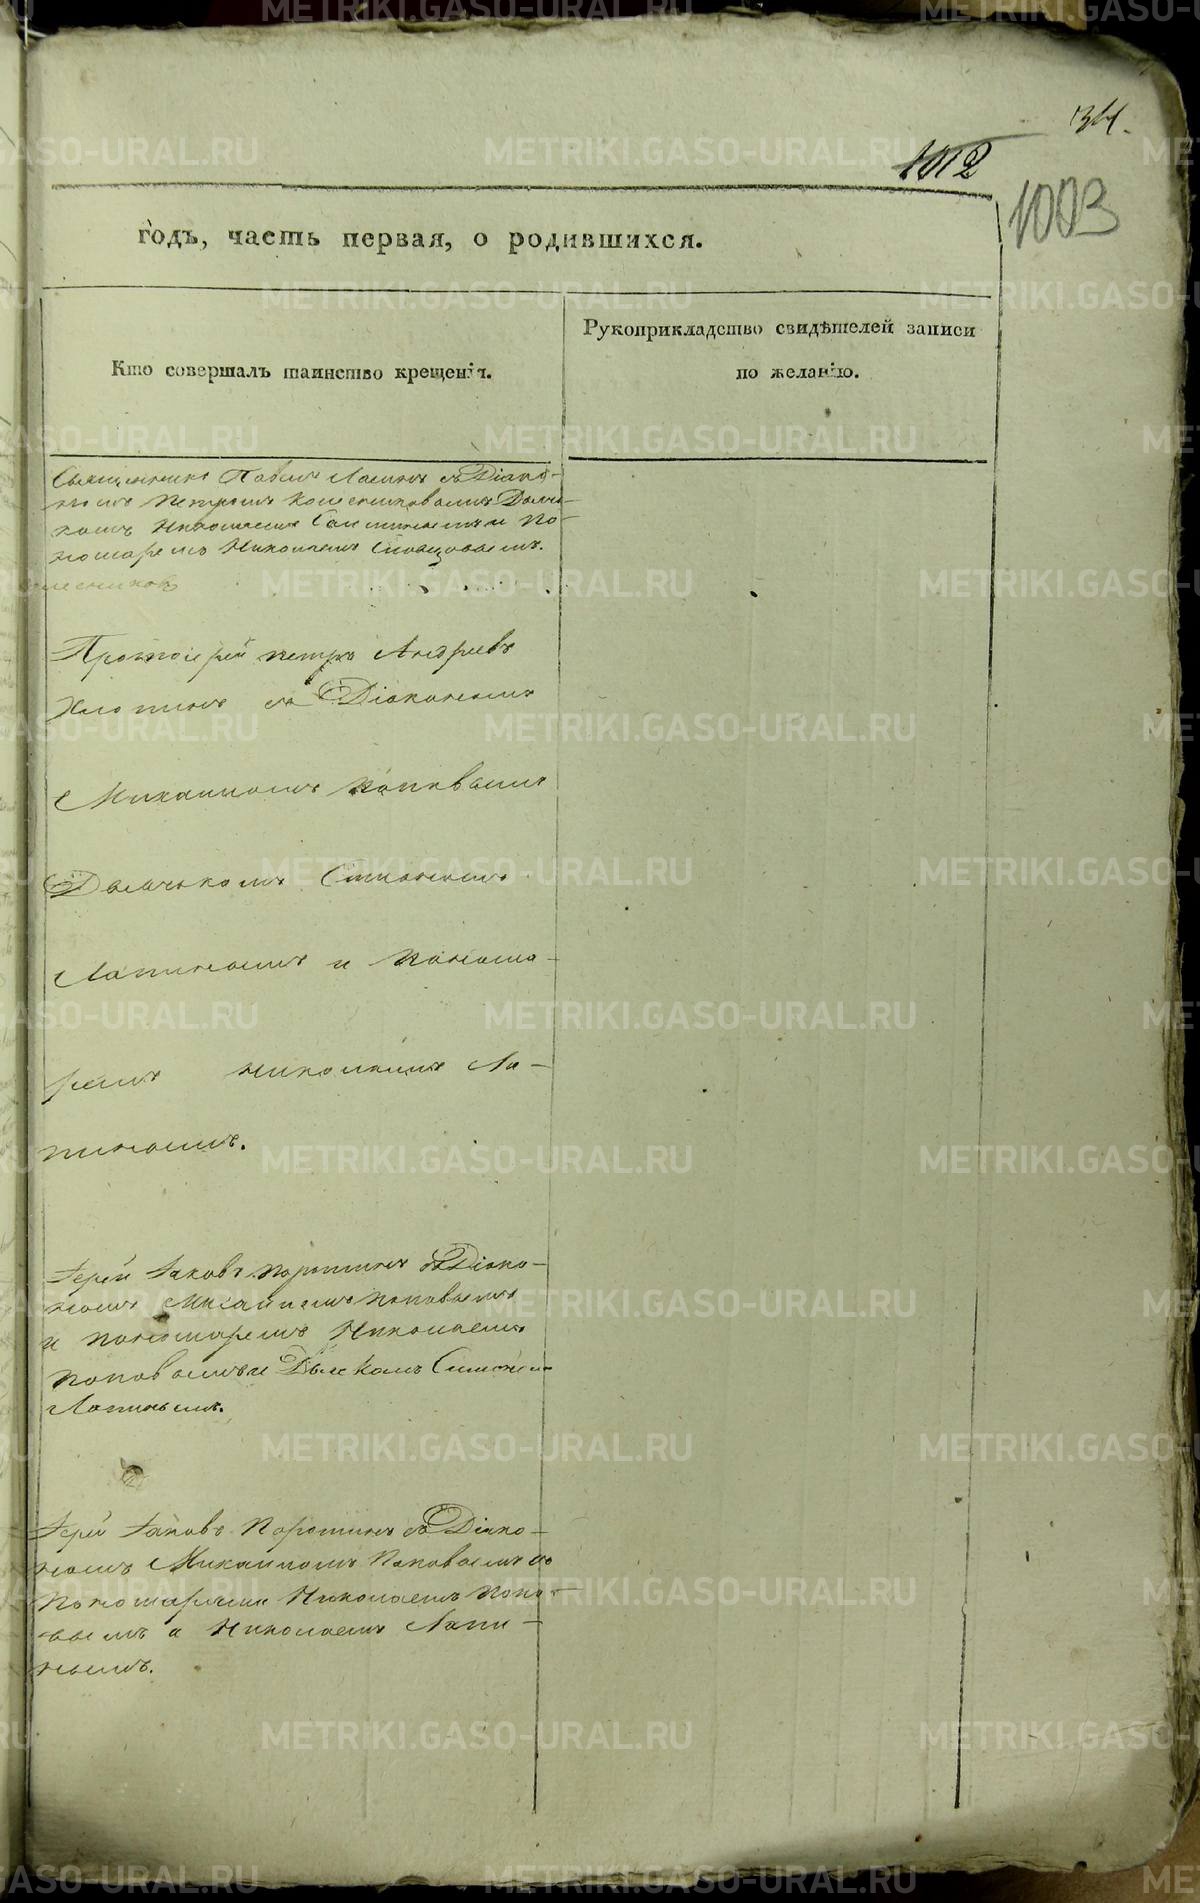 34.
1012
1003
годъ, часть первая, о родившихся.
Кто совершалъ таинство крещенія.
Рукоприкладство свидѣтелей записи
по желанію.
Священникъ Павелъ съ Діако-
номъ Петромъ Колесниковымъ Дьяч-
комъ Николаемъ и По-
номаремъ Николаемъ Словцовымъ.
лесниковъ
Протоіерей петръ Андреевъ
Хлопинъ съ Діакономъ
Михаиломъ поповымъ
Дьячькомъ Симономъ
Лапинымъ и понома-
ремъ николаемъ Ла-
пинымъ.
Іерей Іаковъ поротинъ съ Діако-
номъ Михаиломъ поповымъ
и пономаремъ Николаемъ
поповымъ и Дьячкомъ Симономъ
Лапинымъ.
Іерей Іаковъ Поротинъ съ Діако-
номъ Михаиломъ Поповымъ со
Пономарями Николаемъ Попо-
вымъ и Николаемъ Лапи-
нымъ.
METRIKI.GASO-URAL.RU